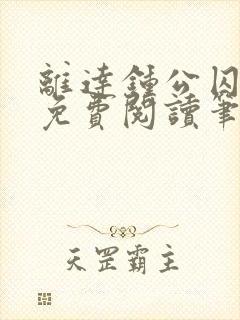 離達鍾公囚
免費閱讀筆
天罡霸主